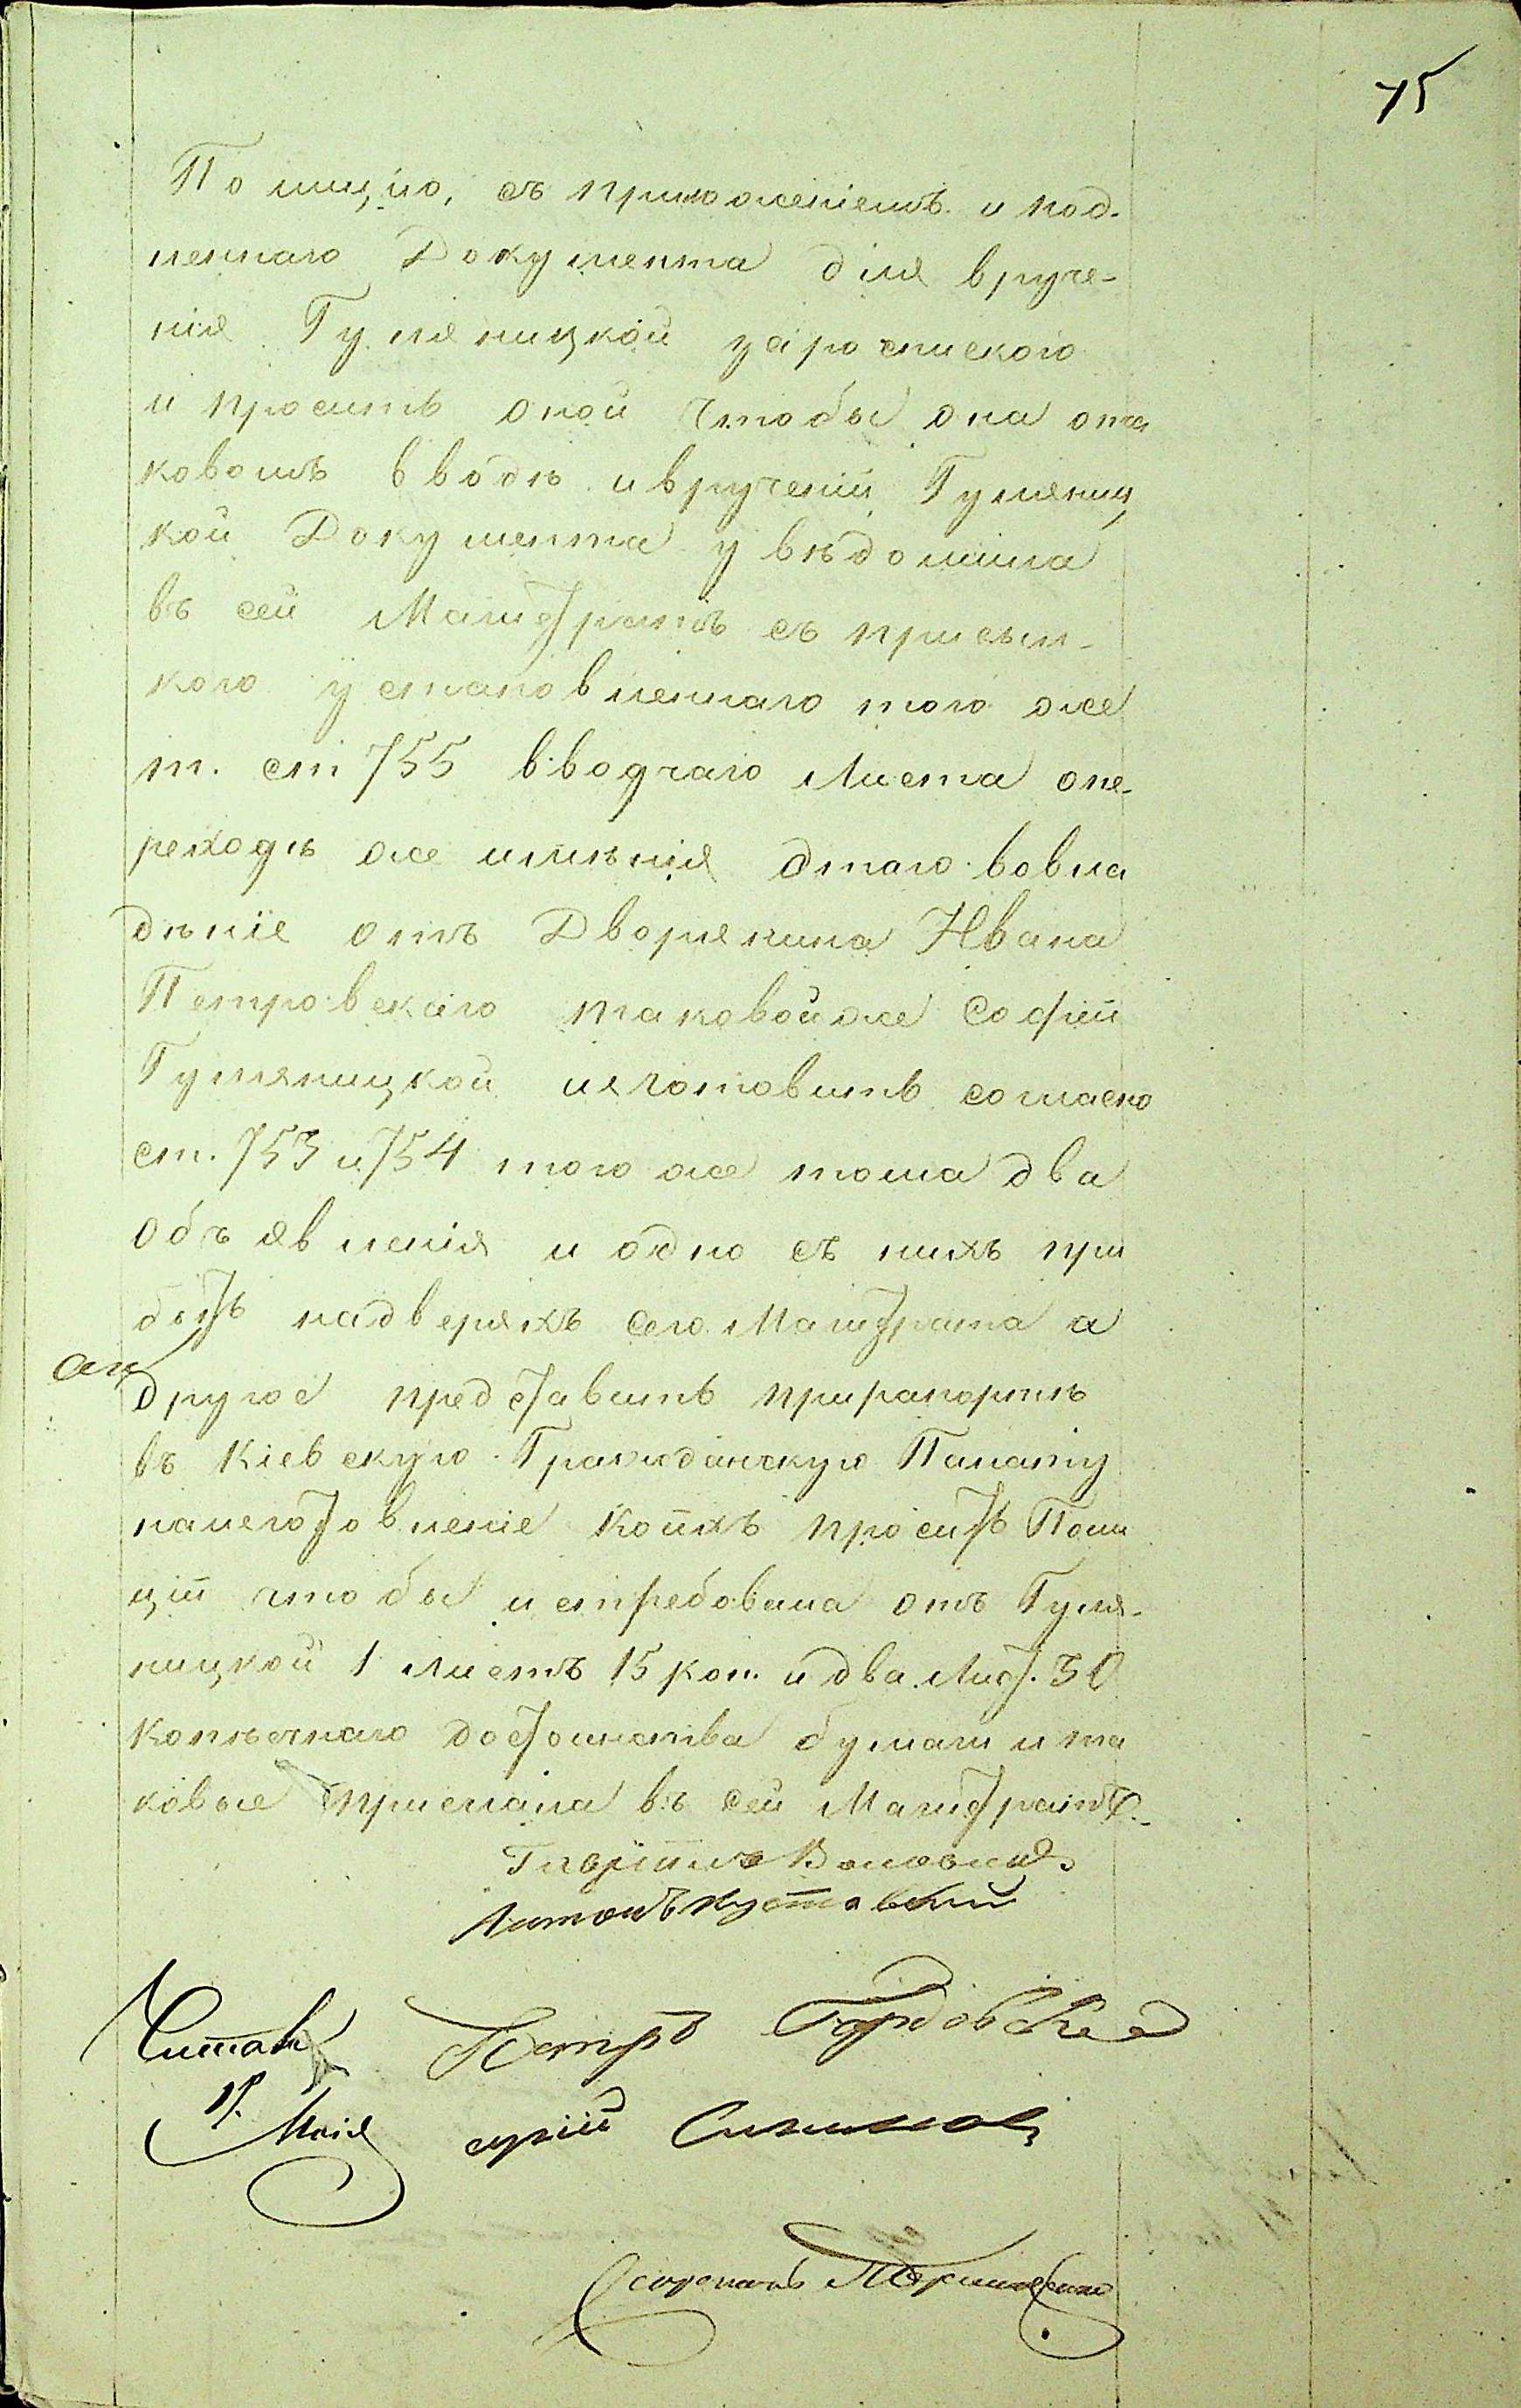 75
Полицію, съ приложеніемъ и под-
леннаго Документа для вруче-
нія Гуляницкой
и просить оной чтобы она ота
ковомъ вводѣ и вручении Гуляниц
кой Документа увѣдомила
въ сей Магистратъ съ присыл-
кою установленнаго того же
т. ст 755 вводчаго Листа опе-
реходѣ же имѣнія этаго вовла
дѣніе отъ Дворянина Ивана
Петровскаго таковой же Софіи
Гуляницкой изготовить согласно
ст. 753 и 754 того же тома два
объявленія и одно съ нихъ при
бить надверяхъ сего Магистрата а
другое представить прирапортѣ
въ Кіевскую Гражданскую Палату
наизготовленіе коихъ просить Поли
ціи чтобы истребовала отъ Гуля-
ницкой 1 листъ 15 коп. и два Лист. 30
копѣечнаго достоинства бумаги и та
ковые прислала въ сей Магистратъ.
Антонъ
Читалъ Петръ
Маія